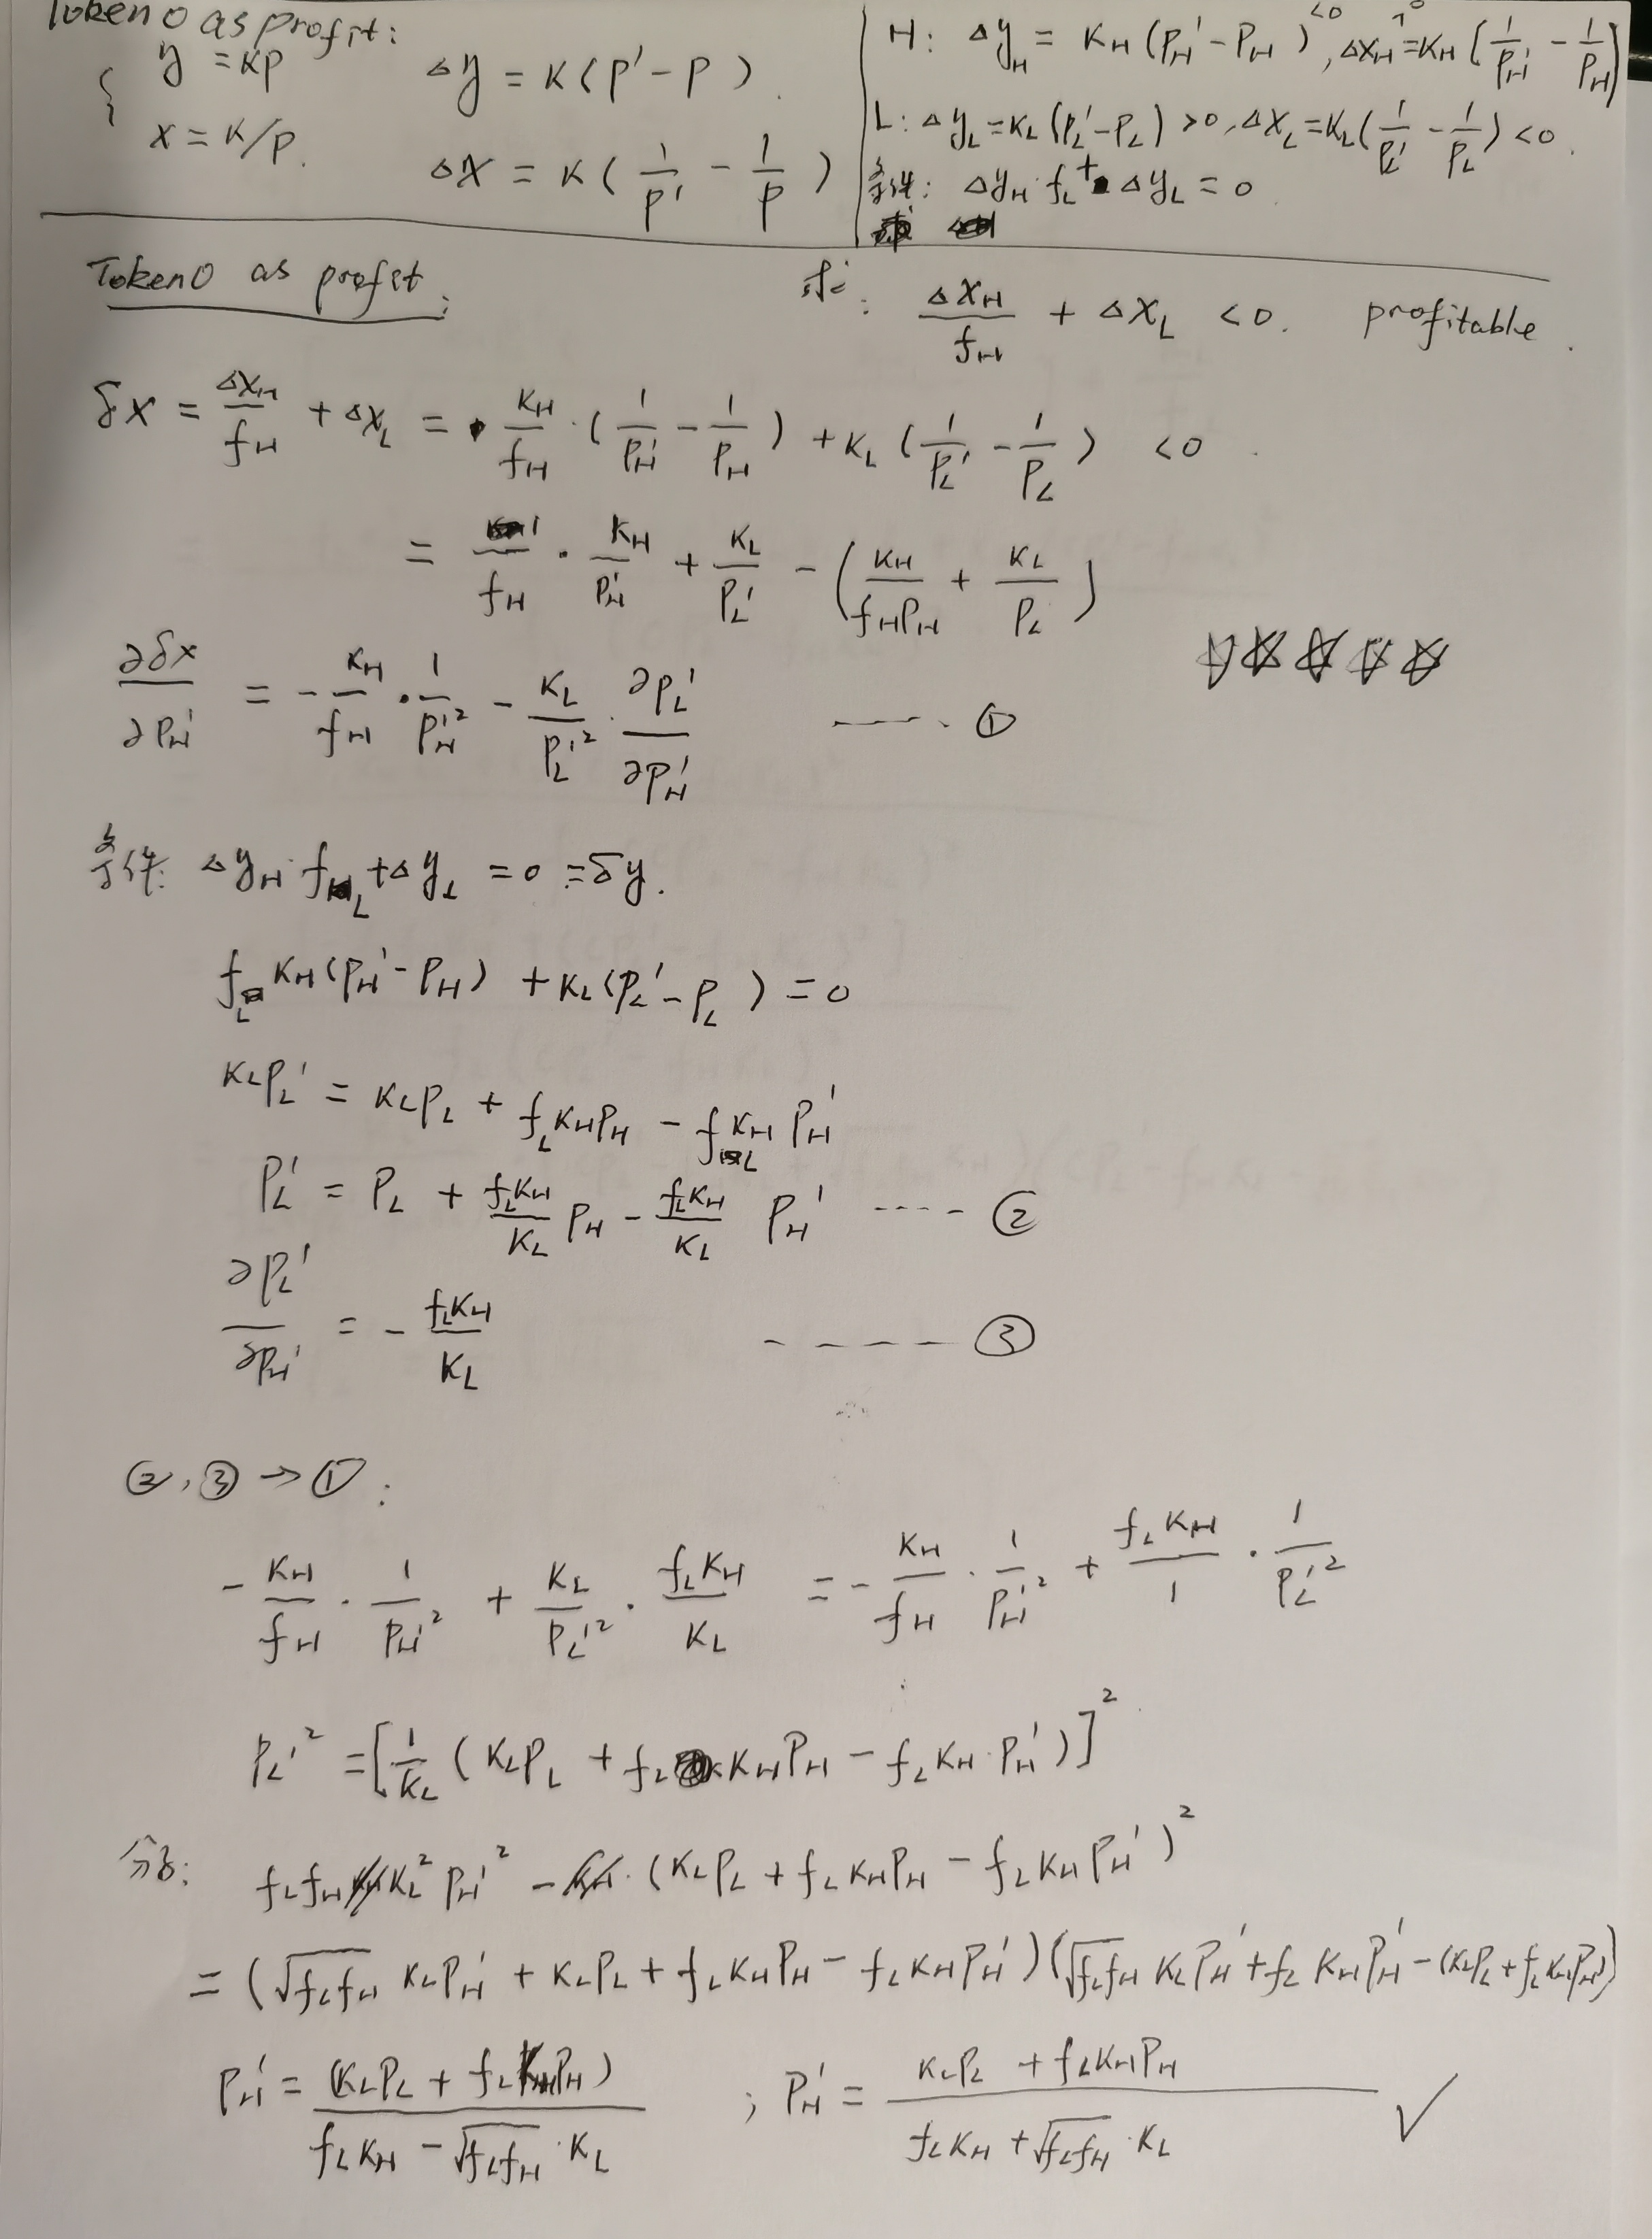 Token 0 as profit:
y = KP    Δy = K(P' - P).
x = K/P.    Δx = K(1/P' - 1/P)
H: Δy_H = K_H(P_H' - P_H) <0, Δx_H = K_H(1/P_H' - 1/P_H) >0
L: Δy_L = K_L(P_L' - P_L) > 0, Δx_L = K_L(1/P_L' - 1/P_L) < 0.
条件: Δy_H · f_L + Δy_L = 0
Token0 as profit:
求: Δx_H/f_H + Δx_L < 0. profitable.
δx = Δx_H/f_H + Δx_L = K_H/f_H · (1/P_H' - 1/P_H) + K_L(1/P_L' - 1/P_L) < 0.
= 1/f_H · K_H/P_H' + K_L/P_L' - (K_H/(f_H P_H) + K_L/P_L)
∂δx/∂P_H' = -K_H/f_H · 1/P_H'² - K_L/P_L'² · ∂P_L'/∂P_H' ----- ①
☆☆☆☆☆
条件: Δy_H · f_L + Δy_L = 0 = δy.
f_L K_H(P_H' - P_H) + K_L(P_L' - P_L) = 0
K_L P_L' = K_L P_L + f_L K_H P_H - f_L K_H P_H'
P_L' = P_L + (f_L K_H/K_L) P_H - (f_L K_H/K_L) P_H' ---- ②
∂P_L'/∂P_H' = - f_L K_H/K_L ----- ③
②, ③ → ①:
- K_H/f_H · 1/P_H'² + K_L/P_L'² · f_L K_H/K_L = - K_H/f_H · 1/P_H'² + f_L K_H/1 · 1/P_L'²
P_L'² = [1/K_L (K_L P_L + f_L K_H P_H - f_L K_H · P_H')]²
分子: f_L f_H K_L² P_H'² - (K_L P_L + f_L K_H P_H - f_L K_H P_H')²
= (√(f_L f_H) K_L P_H' + K_L P_L + f_L K_H P_H - f_L K_H P_H')(√(f_L f_H) K_L P_H' + f_L K_H P_H' - (K_L P_L + f_L K_H P_H))
P_H' = (K_L P_L + f_L K_H P_H)/(f_L K_H - √(f_L f_H) · K_L) ; P_H' = (K_L P_L + f_L K_H P_H)/(f_L K_H + √(f_L f_H) · K_L) ✓